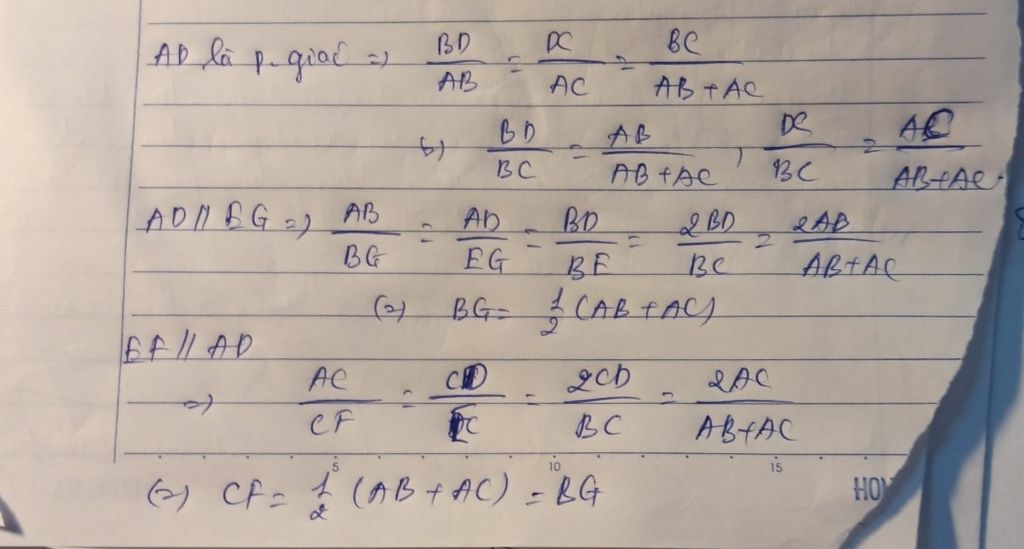 AD là p. giác => BD/AB = DC/AC = BC/AB+AC
(=) BD/BC = AB/AB+AC, DC/BC = AC/AB+AC.
AD // EG => AB/BG = AD/EG = BD/BE = 2BD/BC = 2AB/AB+AC
(=) BG = 1/2 (AB + AC)
EF // AD
=> AC/CF = CD/EC = 2CD/BC = 2AC/AB+AC
5 10 15
(=) CF = 1/2 (AB + AC) = BG